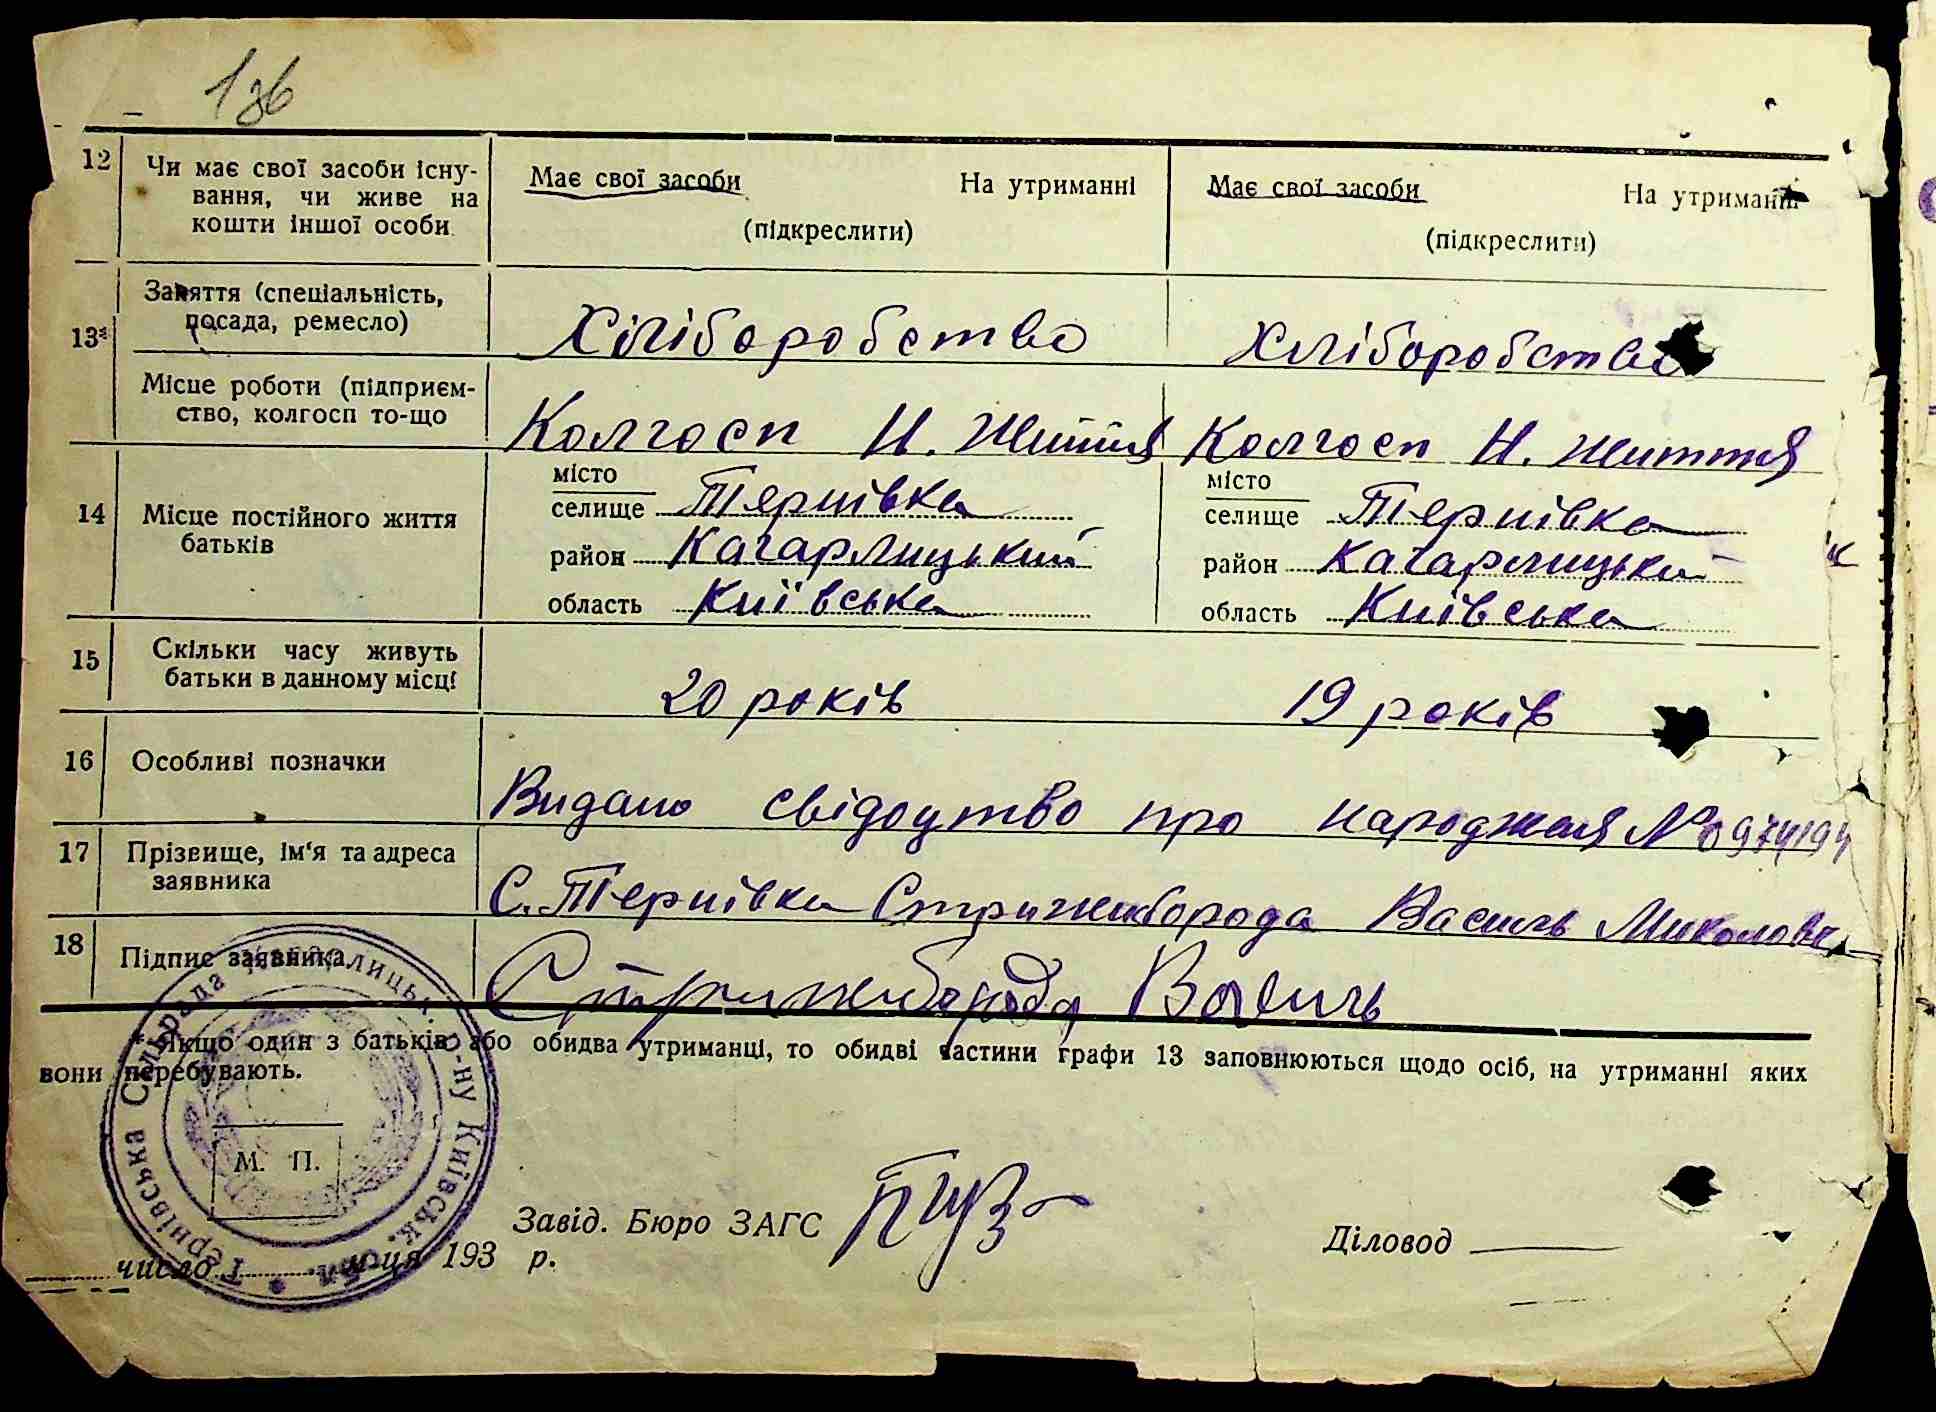 136
12
Чи має свої засоби існу-
вання, чи живе на
кошти іншої особи
Має свої засоби На утриманні
(підкреслити)
Має свої засоби На утриманні
(підкреслити)
13*
Заняття (спеціальність,
посада, ремесло)
Хліборобство
Хліборобство
Місце роботи (підприєм-
ство, колгосп то-що
Колгосп Н. Життя
Колгосп Н. Життя
14
Місце постійного життя
батьків
місто
селище Тернівка
район Кагарлицький
область Київська
місто
селище Тернівка
район Кагарлицький
область Київська
15
Скільки часу живуть
батьки в данному місці
20 років
19 років
16
Особливі позначки
Видано свідоцтво про народження №
17
Прізвище, ім'я та адреса
заявника
С. Тернівка Стрижиборода Василь
18
Підпис заявника
Стрижиборода Василь
* Якщо один з батьків або обидва утриманці, то обидві частини графи 13 заповнюються щодо осіб, на утриманні яких
вони перебувають.
Тернівська Сільрада Кагарлицьк. р-ну Київськ. обл.
М. П.
Завід. Бюро ЗАГС
Діловод
число місяця 193 р.